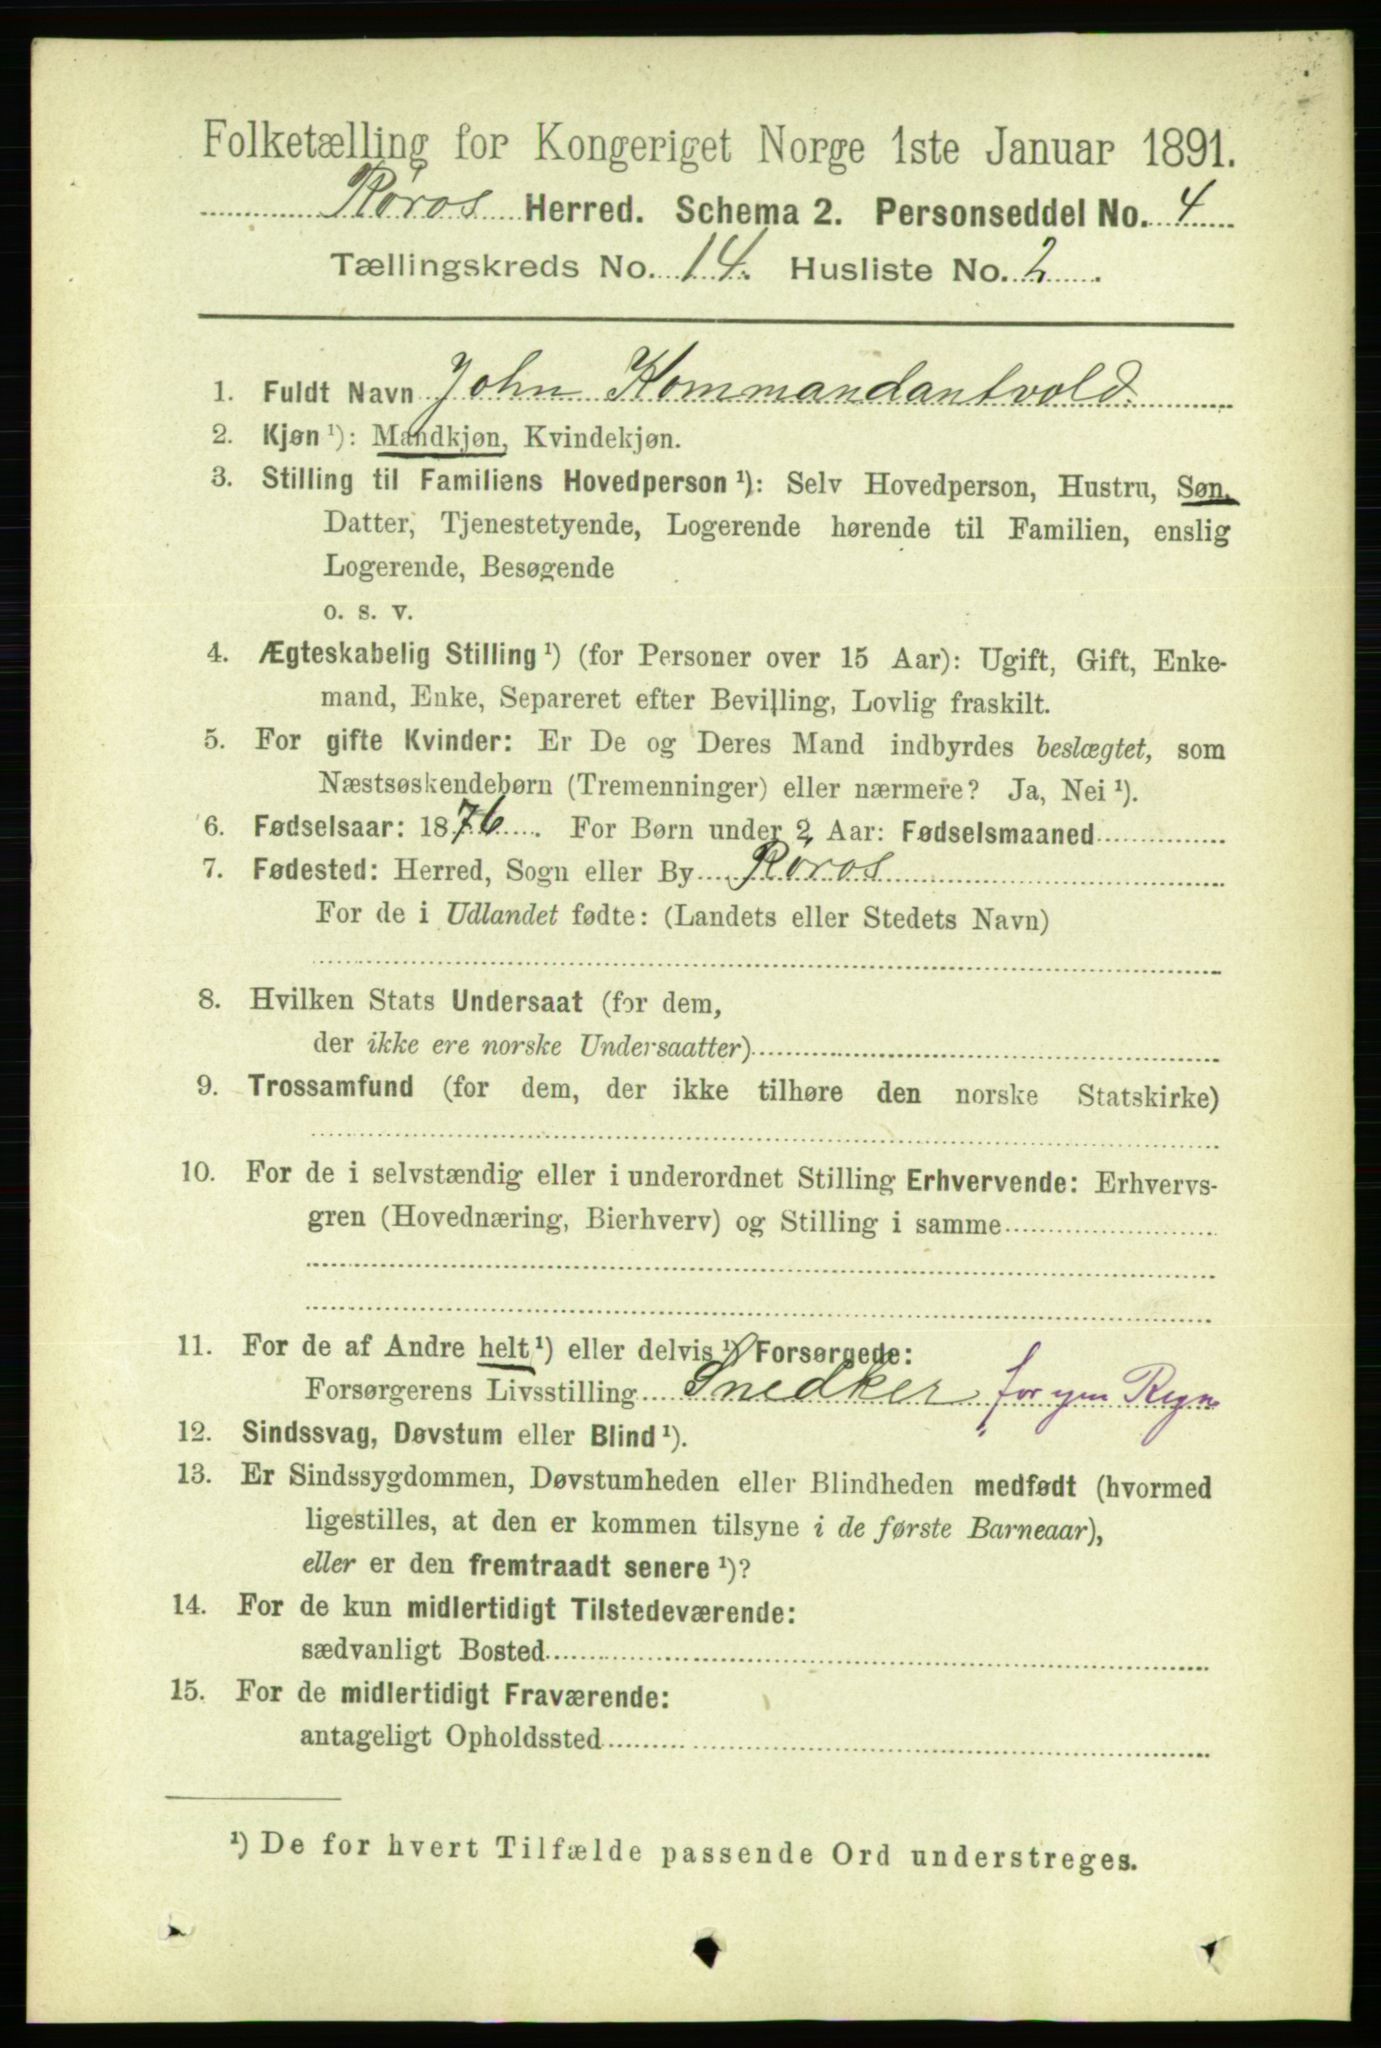 Folketælling for Kongeriget Norge 1ste Januar 1891.
Röros Herred. Schema 2. Personseddel No. 4
Tællingskreds No. 14. Husliste No. 2
1. Fuldt Navn John Kommandantvold.
2. Kjøn ¹): Mandkjøn, Kvindekjøn.
3. Stilling til Familiens Hovedperson ¹): Selv Hovedperson, Hustru, Søn,
Datter, Tjenestetyende, Logerende hørende til Familien, enslig
Logerende, Besøgende
o. s. v.
4. Ægteskabelig Stilling ¹) (for Personer over 15 Aar): Ugift, Gift, Enke-
mand, Enke, Separeret efter Bevilling, Lovlig fraskilt.
5. For gifte Kvinder: Er De og Deres Mand indbyrdes beslægtet, som
Næstsøskendebørn (Tremenninger) eller nærmere? Ja, Nei ¹).
6. Fødselsaar: 1876. For Børn under 2 Aar: Fødselsmaaned
7. Fødested: Herred, Sogn eller By Röros
For de i Udlandet fødte: (Landets eller Stedets Navn)
8. Hvilken Stats Undersaat (for dem,
der ikke ere norske Undersaatter)
9. Trossamfund (for dem, der ikke tilhøre den norske Statskirke)
10. For de i selvstændig eller i underordnet Stilling Erhvervende: Erhvervs-
gren (Hovednæring, Bierhverv) og Stilling i samme
11. For de af Andre helt ¹) eller delvis ¹) Forsørgede:
Forsørgerens Livsstilling Snedker for egen Regn
12. Sindssvag, Døvstum eller Blind ¹).
13. Er Sindssygdommen, Døvstumheden eller Blindheden medfødt (hvormed
ligestilles, at den er kommen tilsyne i de første Barneaar),
eller er den fremtraadt senere ¹)?
14. For de kun midlertidigt Tilstedeværende:
sædvanligt Bosted
15. For de midlertidigt Fraværende:
antageligt Opholdssted
¹) De for hvert Tilfælde passende Ord understreges.